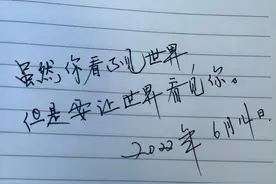 虽然，你看不见世界
但是要让世界看见你。
2022年6月14日.